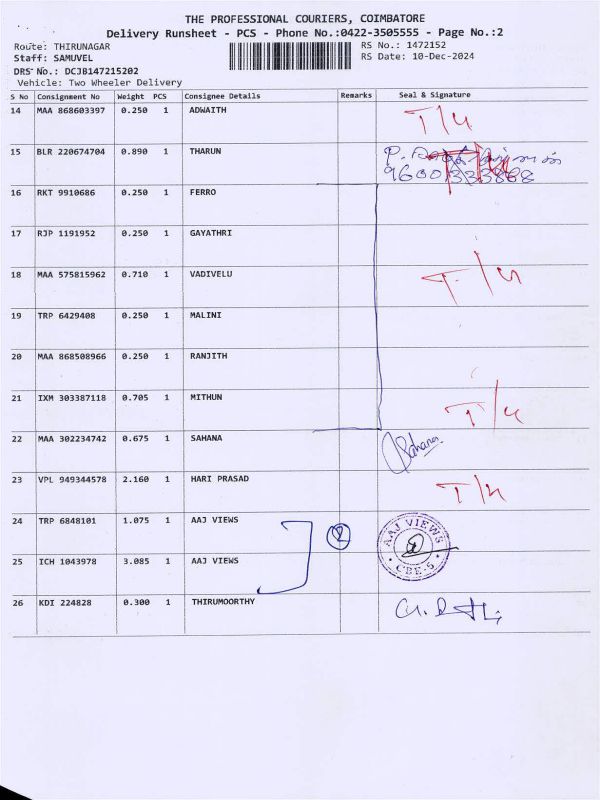 THE PROFESSIONAL COURIERS, COIMBATORE
Delivery Runsheet - PCS - Phone No.:0422-3505555 - Page No.:2
Route: THIRUNAGAR RS No.: 1472152
Staff: SAMUVEL RS Date: 10-Dec-2024
DRS No.: DCJB147215202
Vehicle: Two Wheeler Delivery
S No Consignment No Weight PCS Consignee Details Remarks Seal & Signature
14 MAA 868603397 0.250 1 ADWAITH T/4
15 BLR 220674704 0.890 1 THARUN
9600333868
16 RKT 9910686 0.250 1 FERRO
17 RJP 1191952 0.250 1 GAYATHRI
18 MAA 575815962 0.710 1 VADIVELU T/4
19 TRP 6429408 0.250 1 MALINI
20 MAA 868508966 0.250 1 RANJITH
21 IXM 303387118 0.705 1 MITHUN T/4
22 MAA 302234742 0.675 1 SAHANA Sahana
23 VPL 949344578 2.160 1 HARI PRASAD T/4
24 TRP 6848101 1.075 1 AAJ VIEWS 2 AAJ VIEWS
25 ICH 1043978 3.085 1 AAJ VIEWS CBE-5
26 KDI 224828 0.300 1 THIRUMOORTHY